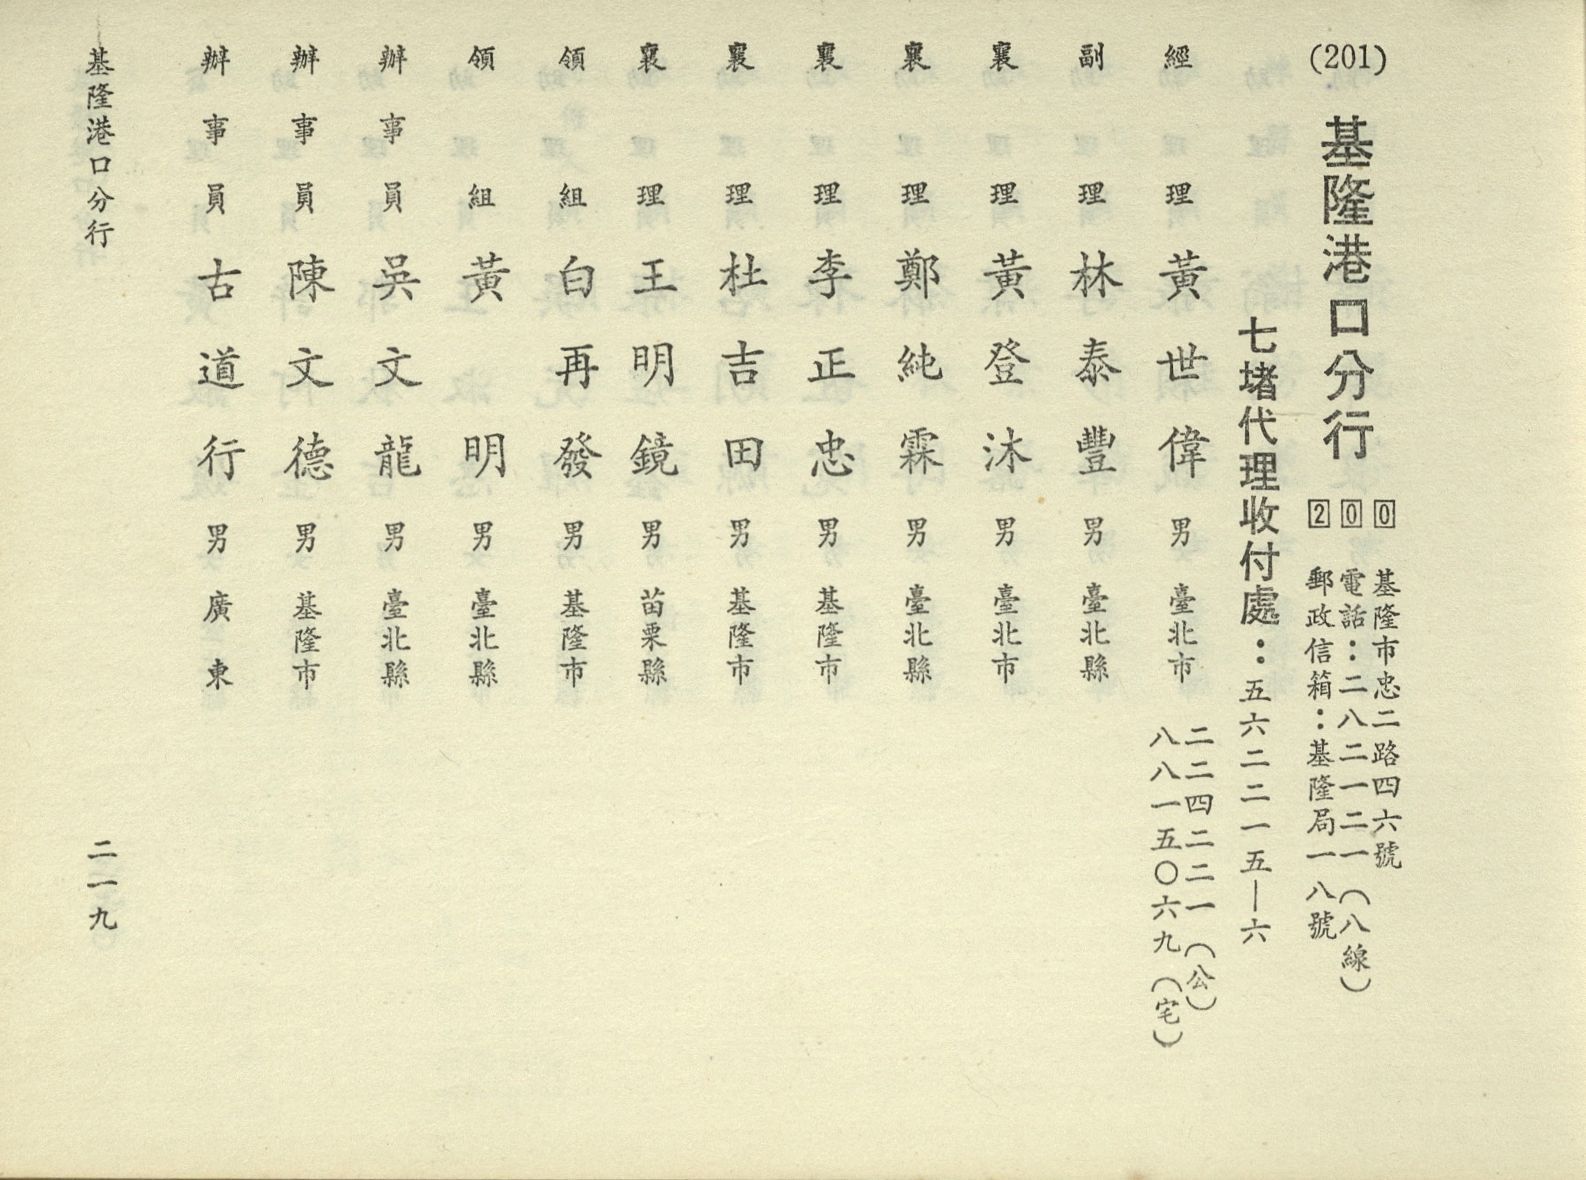 (201) 基隆港口分行 200
基隆市忠二路四六號
電話：二八二一二一（八線）
郵政信箱：基隆局一八號
七堵代理收付處：五六二二一五—六
經理 黃世偉 男 臺北市 二二四二二一（公）
八八一五〇六九（宅）
副理 林泰豐 男 臺北縣
襄理 黃登沐 男 臺北市
襄理 鄭純霖 男 臺北縣
襄理 李正忠 男 基隆市
襄理 杜吉田 男 基隆市
襄理 王明鏡 男 苗栗縣
領組 白再發 男 基隆市
領組 黃明 男 臺北縣
辦事員 吳文龍 男 臺北縣
辦事員 陳文德 男 基隆市
辦事員 古道行 男 廣東
基隆港口分行 二一九